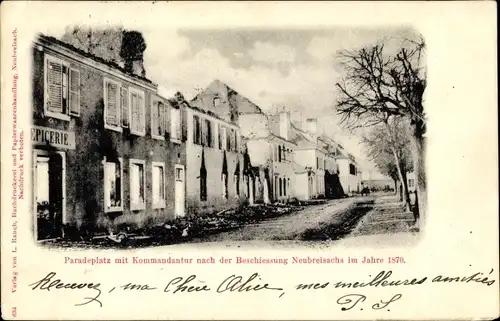 EPICERIE
Paradeplatz mit Kommandantur nach der Beschiessung Neubreisachs im Jahre 1870.
Recevez, ma Chère Alice, mes meilleures amitiés
P. S.
Verlag von L. Rauch, Buchdruckerei und Papierwaarenhandlung, Neubreisach.
Nachdruck verboten.